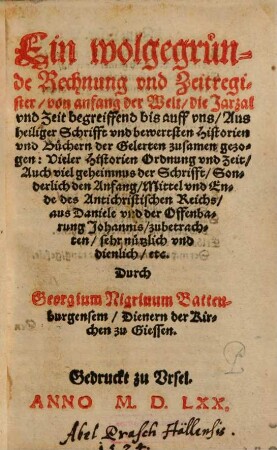 Ein wolgegrün-
de Rechnung vnd Zeitregi-
ster/ von anfang der Welt/ die Jarzal
vnd Zeit begreiffend bis auff vns/ Aus
heiliger Schrifft vnd bewertsten Historien
vnd Büchern der Gelerten zusamen gezo-
gen: Vieler Historien Ordnung vnd Zeit/
Auch viel geheimnus der Schrifft/ Son-
derlich den Anfang/ Mittel vnd En-
de des Antichristischen Reichs/
aus Daniele vnd der Offenba-
rung Johannis/ zubetrach-
ten/ sehr nützlich vnd
dienlich/ etc.
Durch
Georgium Nigrinum Batten-
burgensem/ Dienern der Kir-
chen zu Giessen.
Gedruckt zu Vrsel.
ANNO M. D. LXX.
Abel Prasch Hallensis.